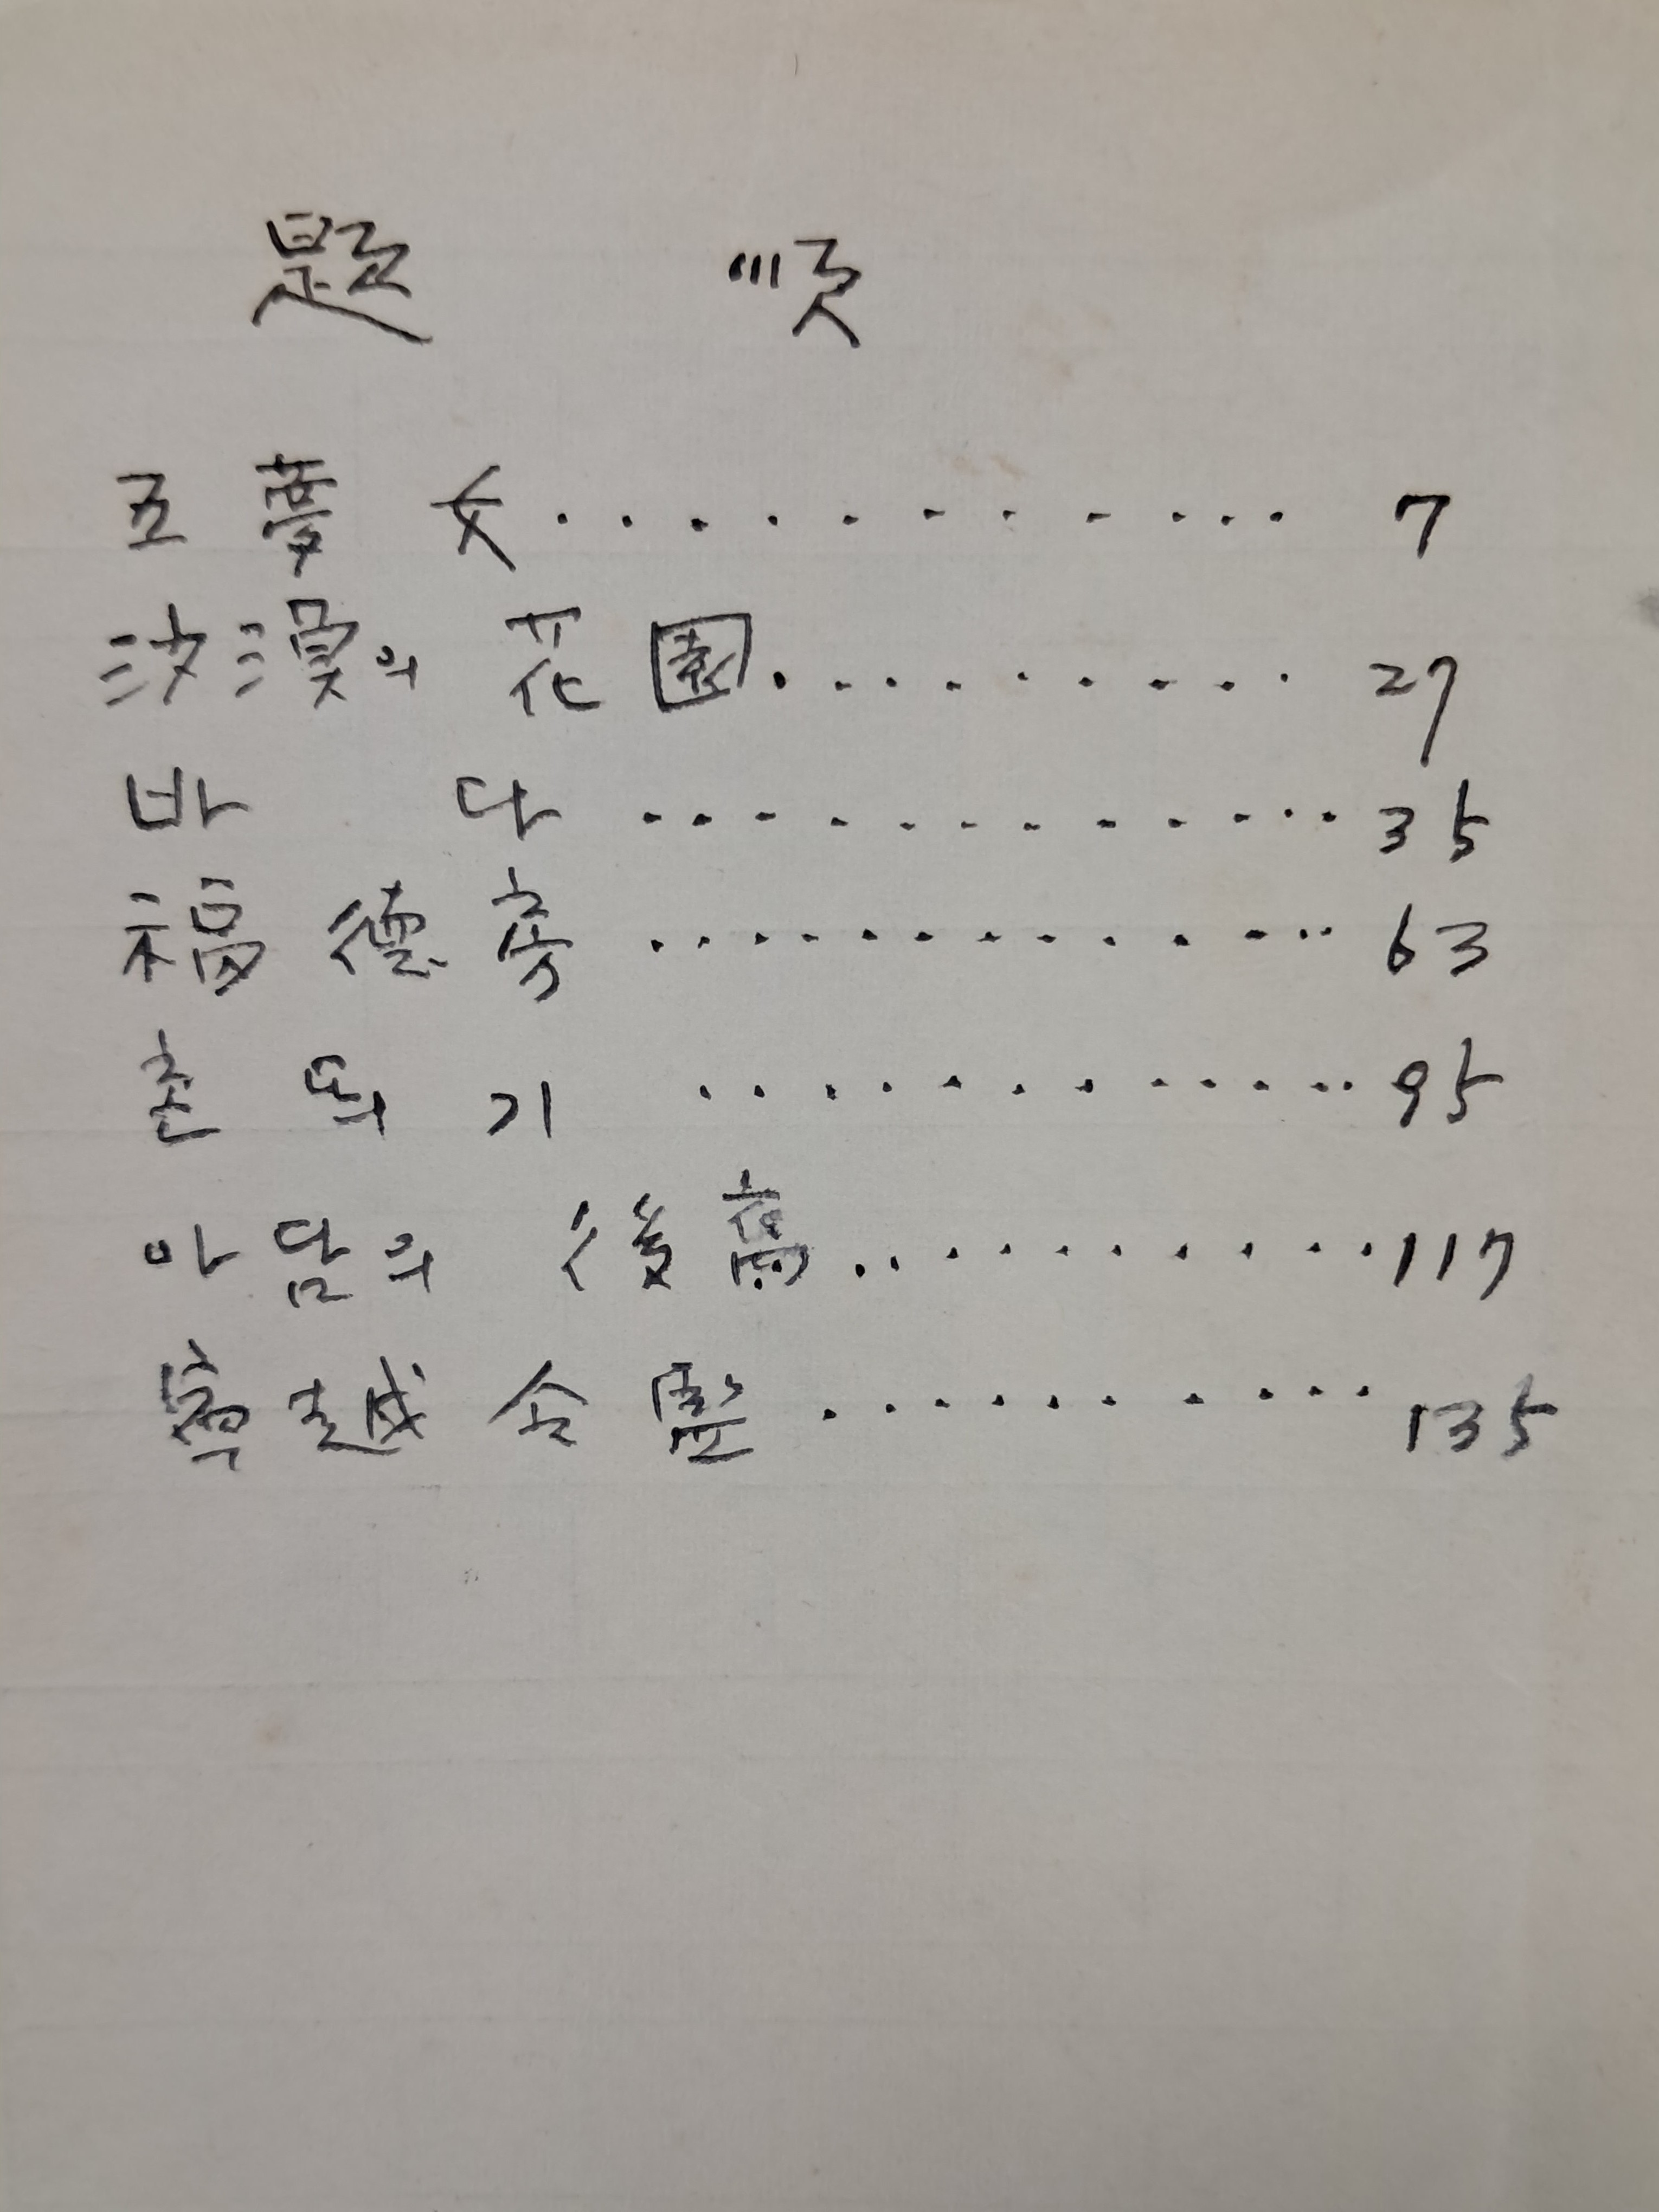 題 順
五夢女 ............ 7
沙漠의 花園 ......... 27
바다 ............ 35
福德房 ............ 63
촌띄기 ............ 95
아담의 後裔 .......... 117
寧越令監 .......... 135